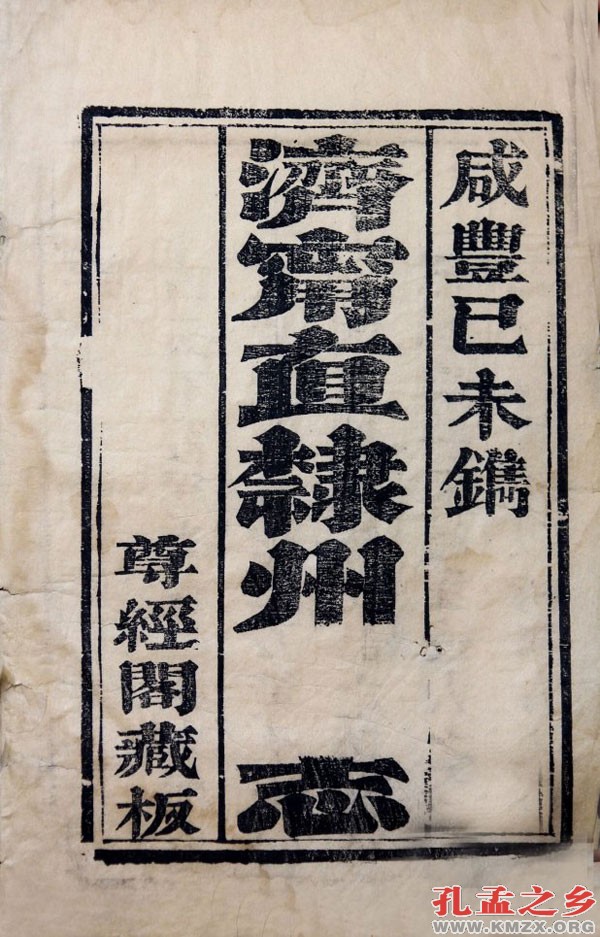 咸豐己未鐫
濟甯直隸州志
尊經閣藏板
孔孟之乡
WWW.KMZX.ORG